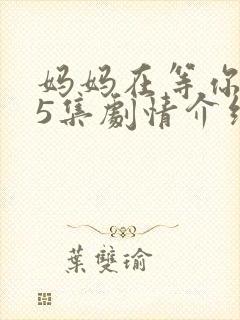 妈妈在等你
5集劇情介
葉雙瑜